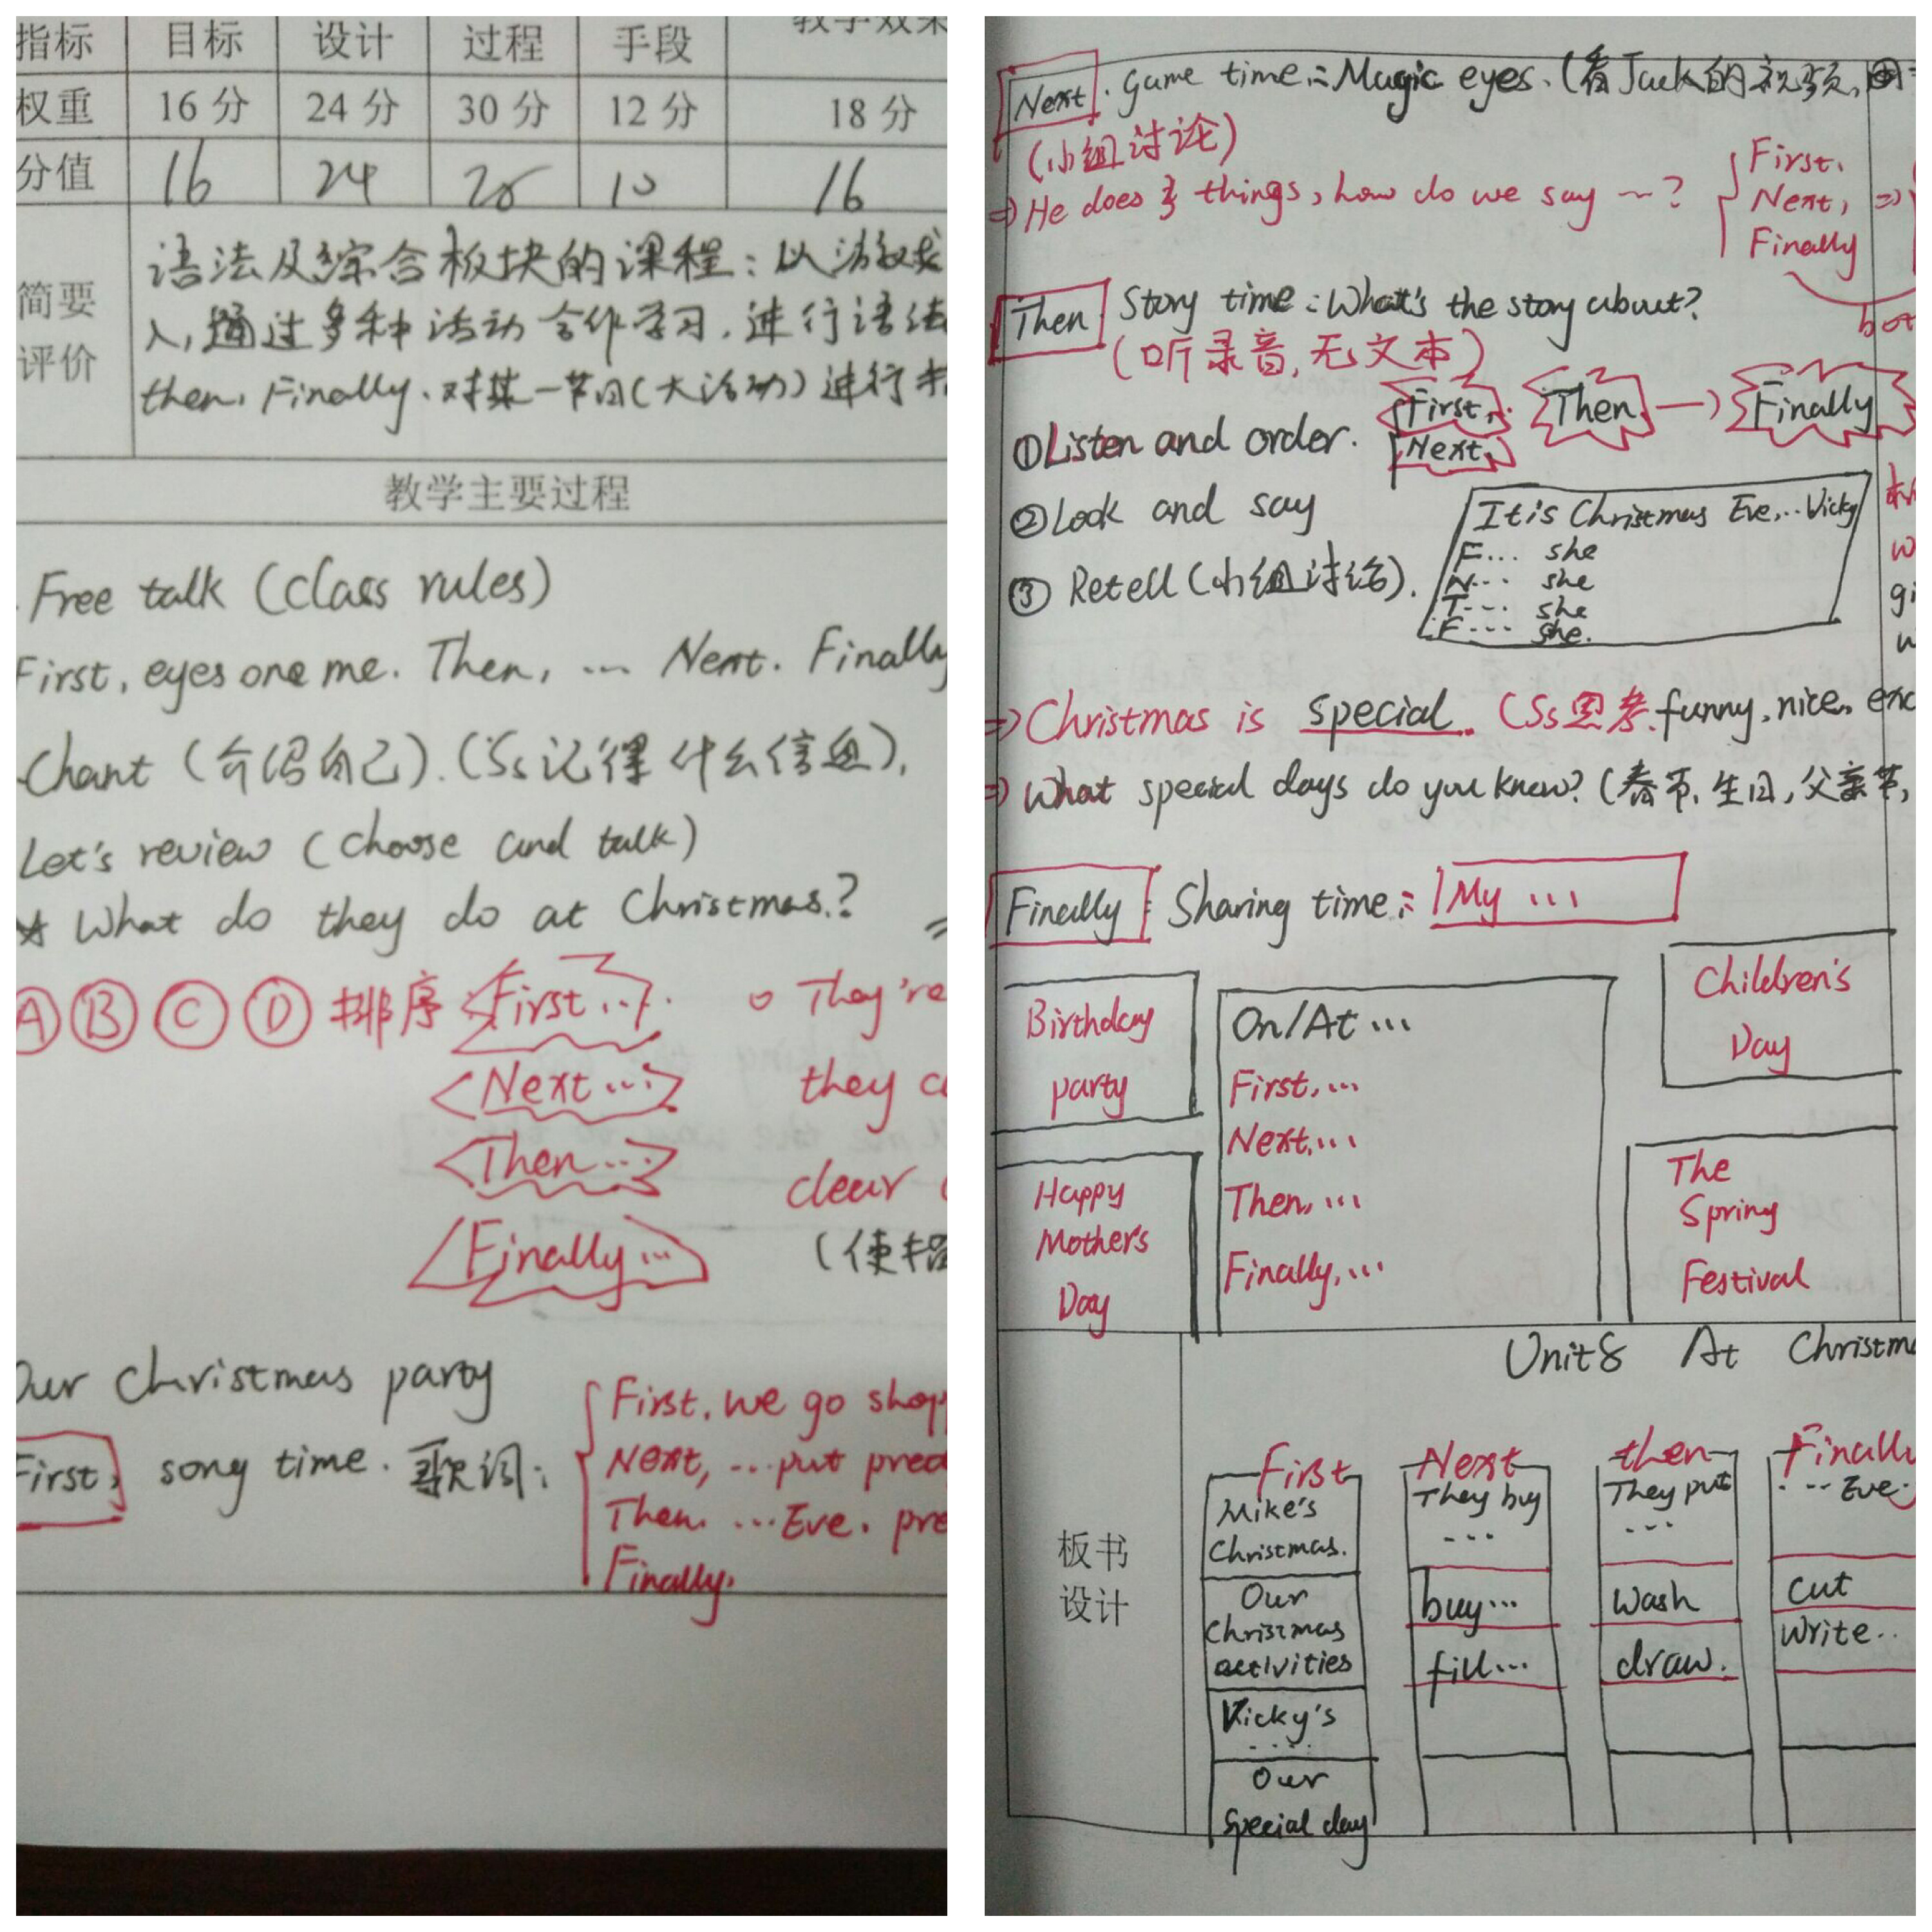 指标 目标 设计 过程 手段 教学效果
权重 16 分 24 分 30 分 12 分 18 分
分值 16 24 28 10 16
简要
评价
语法及综合板块的课程:以游戏
入,通过多种活动合作学习.进行语法
then, Finally.对某一节日(大活动)进行
教学主要过程
Free talk (class rules)
First, eyes one me. Then, ... Next. Finally
Chant (介绍自己).(Ss记得什么信息),
Let's review (choose and talk)
☆ What do they do at Christmas.?
Ⓐ Ⓑ Ⓒ Ⓓ 排序 First... They're
Next... they
Then... clear
Finally... (使
Our Christmas party
First, song time. 歌词:
First, we go shop
Next, ...put
Then. ...Eve. pre
Finally.
Next. Game time: Magic eyes. (看Jack的视频,
(小组讨论)
⇒ He does 3 things, how do we say ~? First,
Next, ⇒
Finally
Then Story time: What's the story about?
(听录音,无文本)
①Listen and order. First, Next, Then → Finally
②Look and say
③ Retell (小组讨论).
It is Christmas Eve,... Vicky
F... she
N... she
T... she
F... she.
⇒ Christmas is special. (Ss思考.funny, nice, exc
⇒ What special days do you know? (春节,生日,父亲节,
Finally: Sharing time: My ...
Birthday
party
Happy
Mother's
Day
On/At ...
First, ...
Next, ...
Then, ...
Finally, ...
Children's
Day
The
Spring
Festival
板书
设计
Unit8 At Christm
First Next then Finally
Mike's Christmas. They buy ... They put ... ... Eve.
Our Christmas activities buy... wash cut
fill... draw. write..
Vicky's ....
Our special day